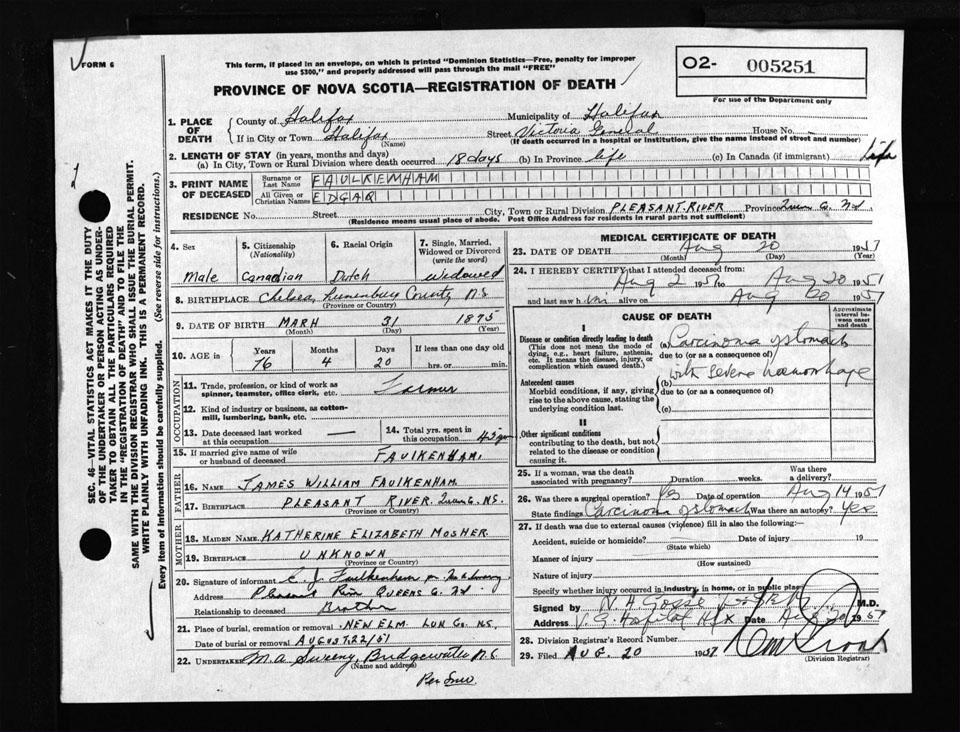 FORM 6
This form, if placed in an envelope, on which is printed "Dominion Statistics—Free, penalty for improper
use $300," and properly addressed will pass through the mail "FREE"
O2- 005251
For use of the Department only
PROVINCE OF NOVA SCOTIA—REGISTRATION OF DEATH
SEC. 46—VITAL STATISTICS ACT MAKES IT THE DUTY
OF THE UNDERTAKER OR PERSON ACTING AS UNDER-
TAKER TO OBTAIN ALL THE PARTICULARS REQUIRED
IN THE "REGISTRATION OF DEATH" AND TO FILE THE
SAME WITH THE DIVISION REGISTRAR WHO SHALL ISSUE THE BURIAL PERMIT.
WRITE PLAINLY WITH UNFADING INK. THIS IS A PERMANENT RECORD.
Every item of information should be carefully supplied. (See reverse side for instructions.)
1. PLACE OF DEATH County of Halifax Municipality of Halifax
If in City or Town Halifax (Name) Street Victoria General House No. -
(If death occurred in a hospital or institution, give the name instead of street and number)
2. LENGTH OF STAY (in years, months and days)
(a) In City, Town or Rural Division where death occurred 18 days (b) In Province life (c) In Canada (if immigrant) Life
3. PRINT NAME OF DECEASED
Surname or Last Name FAULKEMHAM
All Given or Christian Names EDGAR
RESIDENCE No. Street City, Town or Rural Division PLEASANT RIVER Province
(Residence means usual place of abode. Post Office Address for residents in rural parts not sufficient)
4. Sex Male
5. Citizenship (Nationality) Canadian
6. Racial Origin Dutch
7. Single, Married, Widowed or Divorced (write the word) Widowed
8. BIRTHPLACE Chelsea, Lunenburg County N.S.
(Province or Country)
9. DATE OF BIRTH MARH (Month) 31 (Day) 1875 (Year)
10. AGE in Years 76 Months 4 Days 20 If less than one day old hrs. or min.
OCCUPATION
11. Trade, profession, or kind of work as spinner, teamster, office clerk, etc. Farmer
12. Kind of industry or business, as cotton-mill, lumbering, bank, etc.
13. Date deceased last worked at this occupation —
14. Total yrs. spent in this occupation 45 yrs
15. If married give name of wife or husband of deceased FAULKENHAM.
FATHER
16. Name JAMES WILLIAM FAULKENHAM.
17. Birthplace PLEASANT RIVER. NS.
(Province or Country)
MOTHER
18. Maiden Name KATHERINE ELIZABETH MOSHER.
19. Birthplace UNKNOWN
(Province or Country)
20. Signature of informant C. J. Faulkenham
Address Pleasant River QUEENS
Relationship to deceased Brother
21. Place of burial, cremation or removal NEW ELM. LUN Co. NS.
Date of burial or removal AUGUST.22/51
22. Undertaker M.A. Sweeny, Bridgewater N.S.
(Name and address)
MEDICAL CERTIFICATE OF DEATH
23. DATE OF DEATH Aug (Month) 20 (Day) 1951 (Year)
24. I HEREBY CERTIFY that I attended deceased from:
Aug 2 1951 to Aug 20 1951
and last saw him alive on Aug 20 1951
CAUSE OF DEATH
Approximate interval between onset and death
I
Disease or condition directly leading to death
(This does not mean the mode of dying, e.g., heart failure, asthenia, etc. It means the disease, injury, or complication which caused death.)
(a) Carcinoma of stomach
due to (or as a consequence of)
with severe haemorrhage
Antecedent causes
Morbid conditions, if any, giving rise to the above cause, stating the underlying condition last.
(b)
due to (or as a consequence of)
(c)
II
Other significant conditions
contributing to the death, but not related to the disease or condition causing it.
25. If a woman, was the death associated with pregnancy? Duration weeks. Was there a delivery?
26. Was there a surgical operation? Yes Date of operation Aug 14 1951
State findings Carcinoma of stomach Was there an autopsy? Yes
27. If death was due to external causes (violence) fill in also the following:—
Accident, suicide or homicide? (State which) Date of injury 19
Manner of injury (How sustained)
Nature of injury
Specify whether injury occurred in industry, in home, or in public place
Signed by M.D.
Address V. G. Hospital Hfx Date Aug 20 1951
28. Division Registrar's Record Number
29. Filed AUG. 20 1951
(Division Registrar)